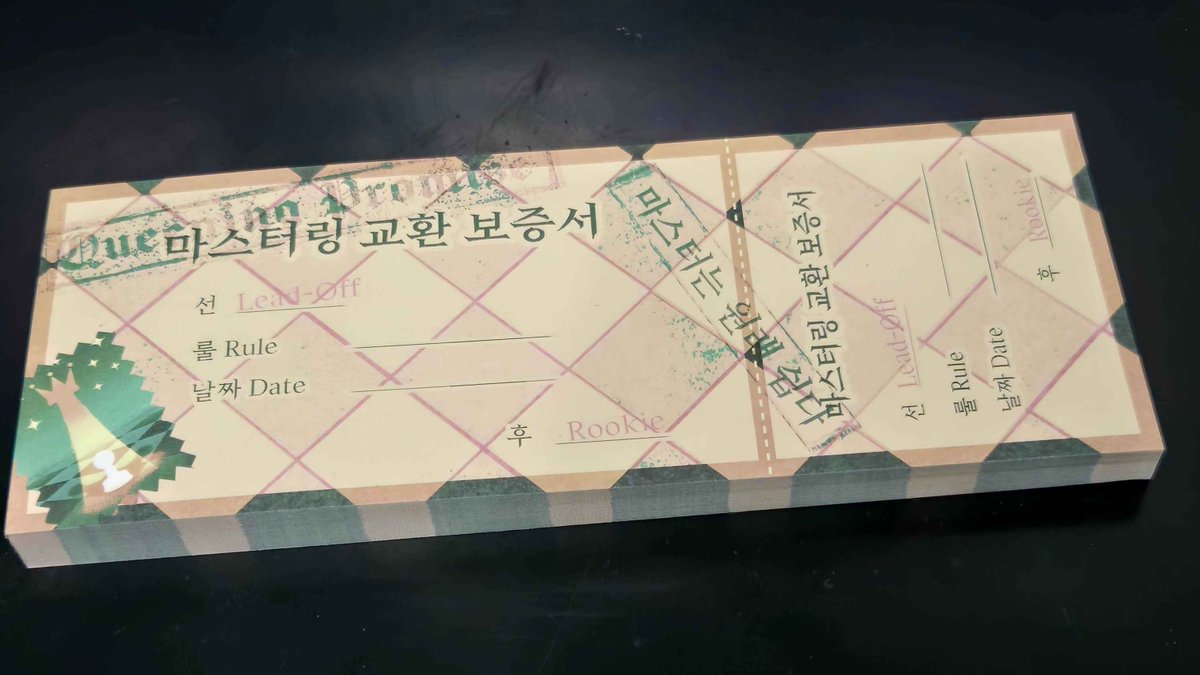 Queening Promise
마스터링 교환 보증서
선 Lead-Øff
룰 Rule
날짜 Date
후 Rookie
마스터는
마스터링 교환 보증서
선 Lead-Øff
룰 Rule
날짜 Date
후 Rookie